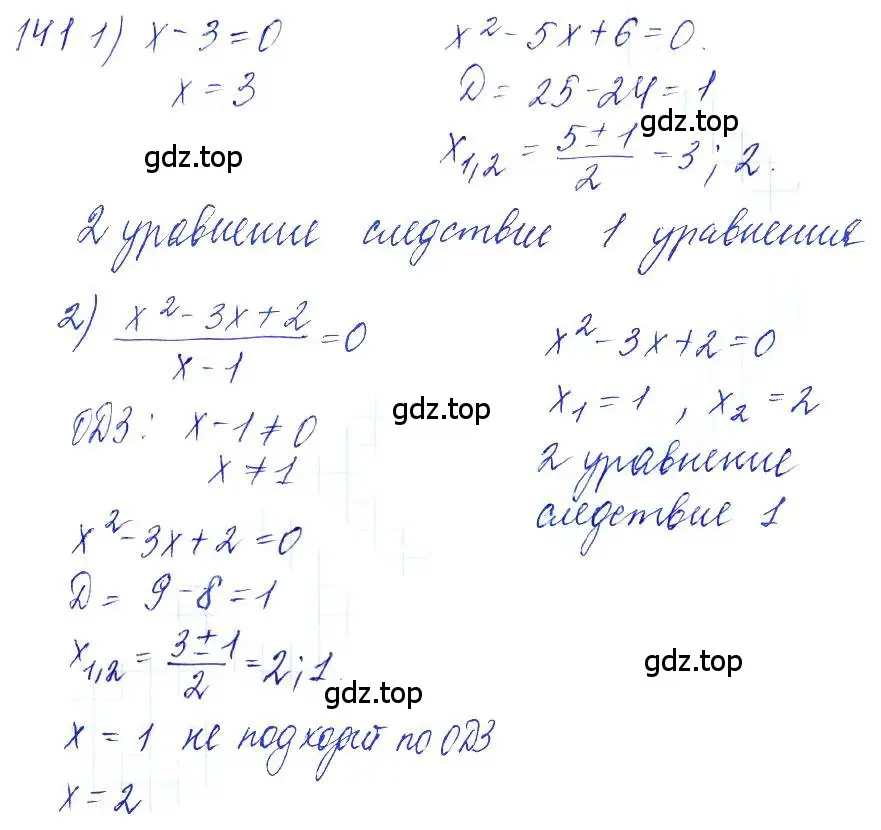 141 1) x - 3 = 0
x = 3
x² - 5x + 6 = 0.
D = 25 - 24 = 1
x₁,₂ = (5 ± 1)/2 = 3; 2.
gdz.top
gdz.top
2 уравнение следствие 1 уравнения
2) (x² - 3x + 2)/(x - 1) = 0
ОДЗ: x - 1 ≠ 0
x ≠ 1
x² - 3x + 2 = 0
D = 9 - 8 = 1
x₁,₂ = (3 ± 1)/2 = 2; 1.
gdz.top
x = 1 не подходит по ОДЗ
x = 2
gdz.top
x² - 3x + 2 = 0
x₁ = 1, x₂ = 2
2 уравнение
следствие 1
gdz.top